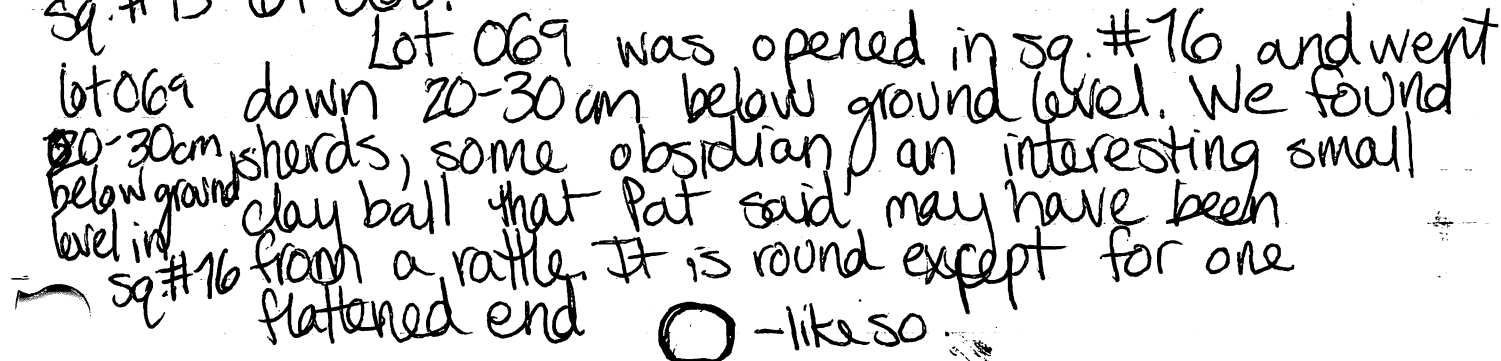 sq. #15
Lot 069 was opened in sq. #16 and went
down 20-30cm below ground level. We found
sherds, some obsidian, an interesting small
clay ball that Pat said may have been
from a rattle. It is round except for one
flattened end -like so.
lot 069
20-30cm
below ground
level in
sq. #16